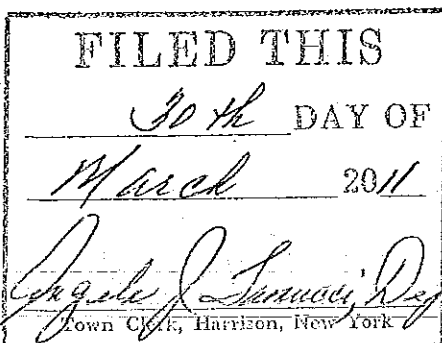 FILED THIS
30th DAY OF
March 2011
Town Clerk, Harrison, New York